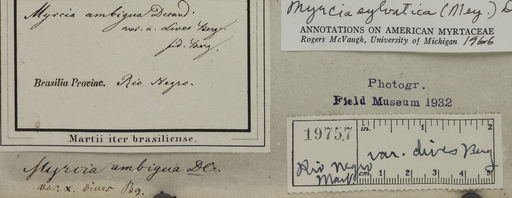 Myrcia ambigua Decand.
var. α. dives Berg.
fid. Berg.
Brasilia Provinc. Rio Negro.
Martii iter brasiliense.
Myrcia ambigua DC.
var. α. dives Bg.
Myrcia sylvatica (Mey.) D
ANNOTATIONS ON AMERICAN MYRTACEAE
Rogers McVaugh, University of Michigan 1966
Photogr.
Field Museum 1932
19757
in. 1 2
var. dives Berg
Rio Negro
Mart.
cm 1 2 3 4 5